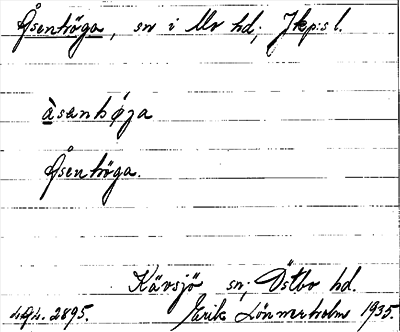 Åsenhöga, sn i Mo hd, Jkp:s l.
àsanhøga
Åsenhöga.
Kävsjö sn, Östbo hd.
Erik Lönnerholm 1935.